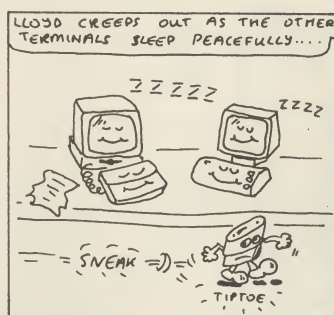 LLOYD CREEPS OUT AS THE OTHER
TERMINALS SLEEP PEACEFULLY....
ZZZZZ
ZZZZ
SNEAK
TIPTOE